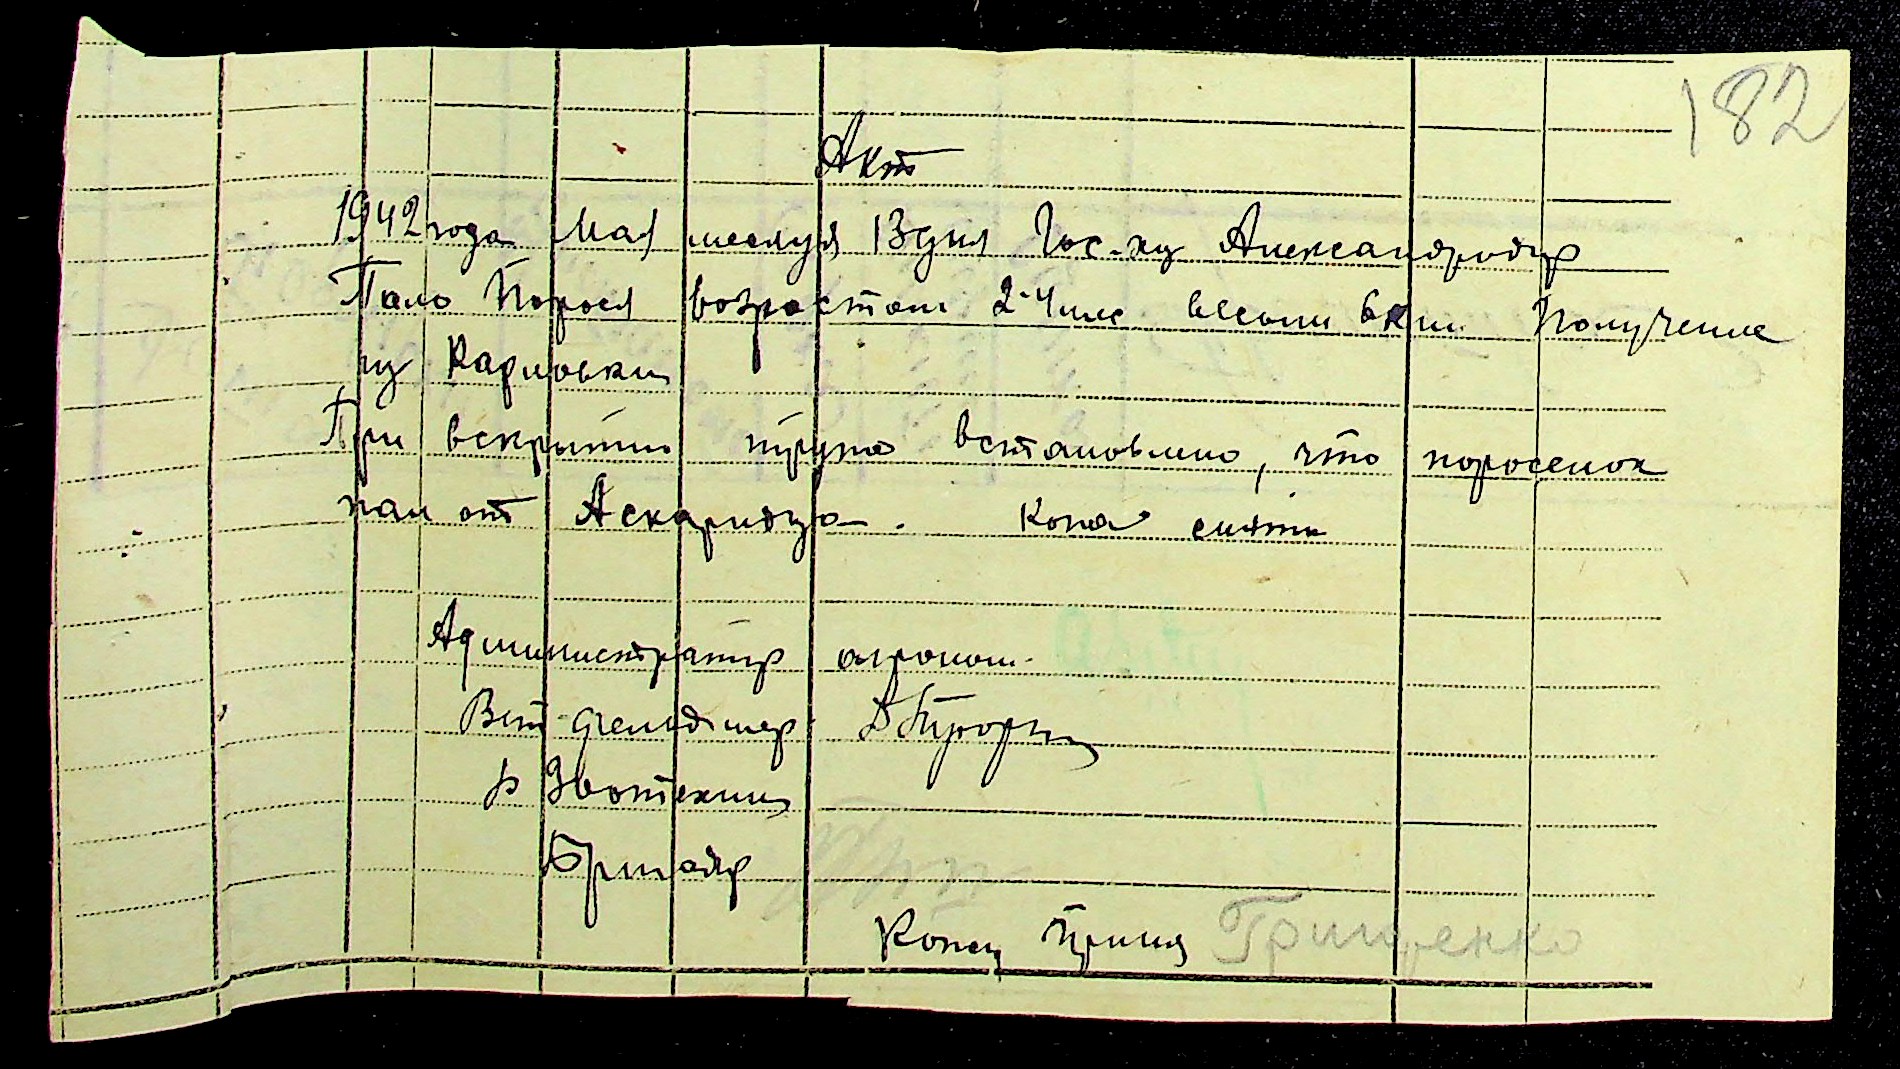 182
Акт
1942 года Мая месяця 13 дня Гос-ху Александродар
Пало Порося возрастом 2-4 мес весом 6 кгм. Получение
из Карловки
При вскрытии трупа встановлено, что поросенок
пал от Аскаридоза. Кожа снята
Администратор агроном.
Вет-фельдшер
Зоотехник
Бригадир
Кожу принял Грищенко